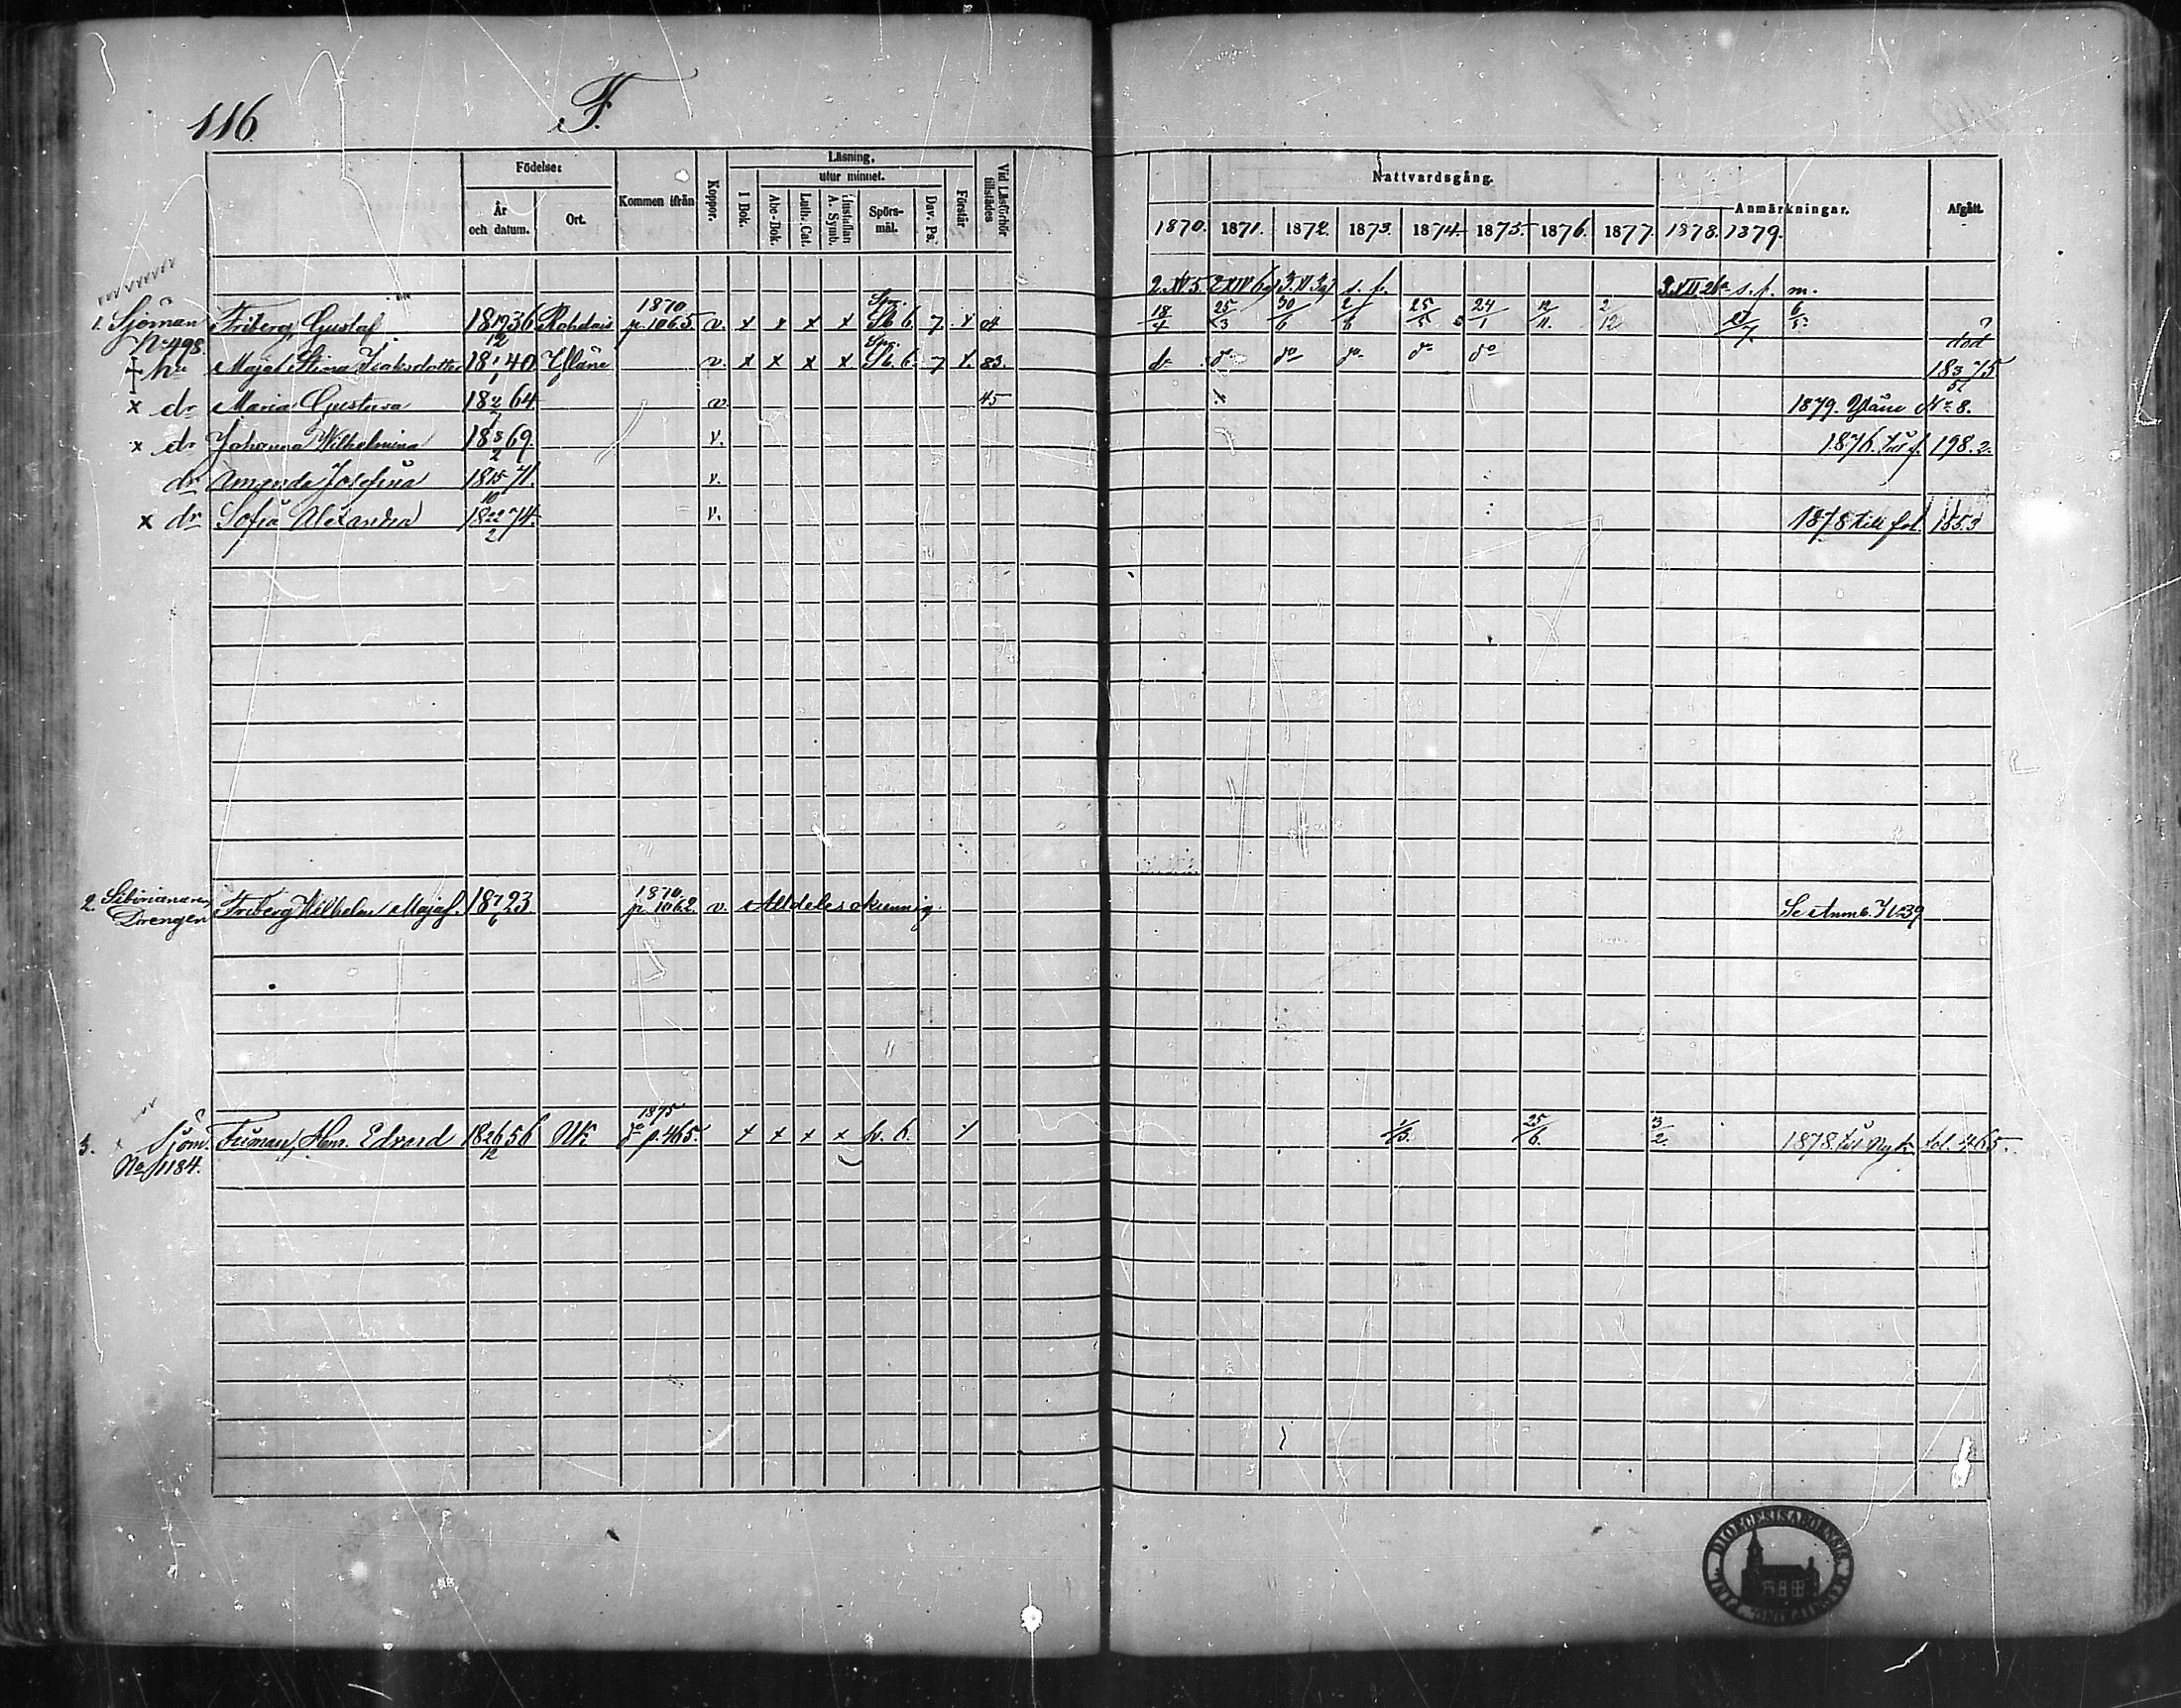 116
F.
Födelse:
År och datum.
Ort.
Kommen ifrån
Koppor.
Läsning.
I Bok.
utur minnet.
Abc-Bok.
Luth. Cat.
Hustaflan A. Symb.
Spörs-mål.
Dav. Ps.
Förstår
Vid Läsförhör tillstädes
Nattvardsgång.
Anmärkningar.
Afgått.
1870. 1871. 1872. 1873. 1874. 1875. 1876. 1877. 1878. 1879.
s. f. s. f. m.
1. Sjöman Friberg, Gustaf 18 19/12 36 1870 p. 1065 v. x x x x Spr. 6 7 x 18/4 25/3 30/6 2/6 25/5 24/1 12/11 2/12 6/5
No 498
hu Maja Stina Isaksdotter 18 1/1 40 Yläne v. x x x x Spr. 6. 7 x. 83. do do do do do do död 18 3/5 75
x dr Maria Gustava 18 2/7 64 v. 45 1879. Yläne No 8.
x dr Johanna Wilhelmina 18 8/2 69. v. 1876. till f. 198.2.
dr Amanda Josefina 18 15/10 71. v.
x dr Sofia Alexandra 18 22/2 74. v. 1878 till fol. 1853
2. Drengen Friberg Wilhelm Majaf. 18 7/6 23 1870 p. 1062. v. Alldeles okunnig Se
3. Sjöm. Edvard 18 26/12 56 NK. 1875 do p. 465. x x x x 6. 25/6. 3/2. 1878 till Nyk. fol. 465.
No 1184.
DIOECESIS ABOENSIS